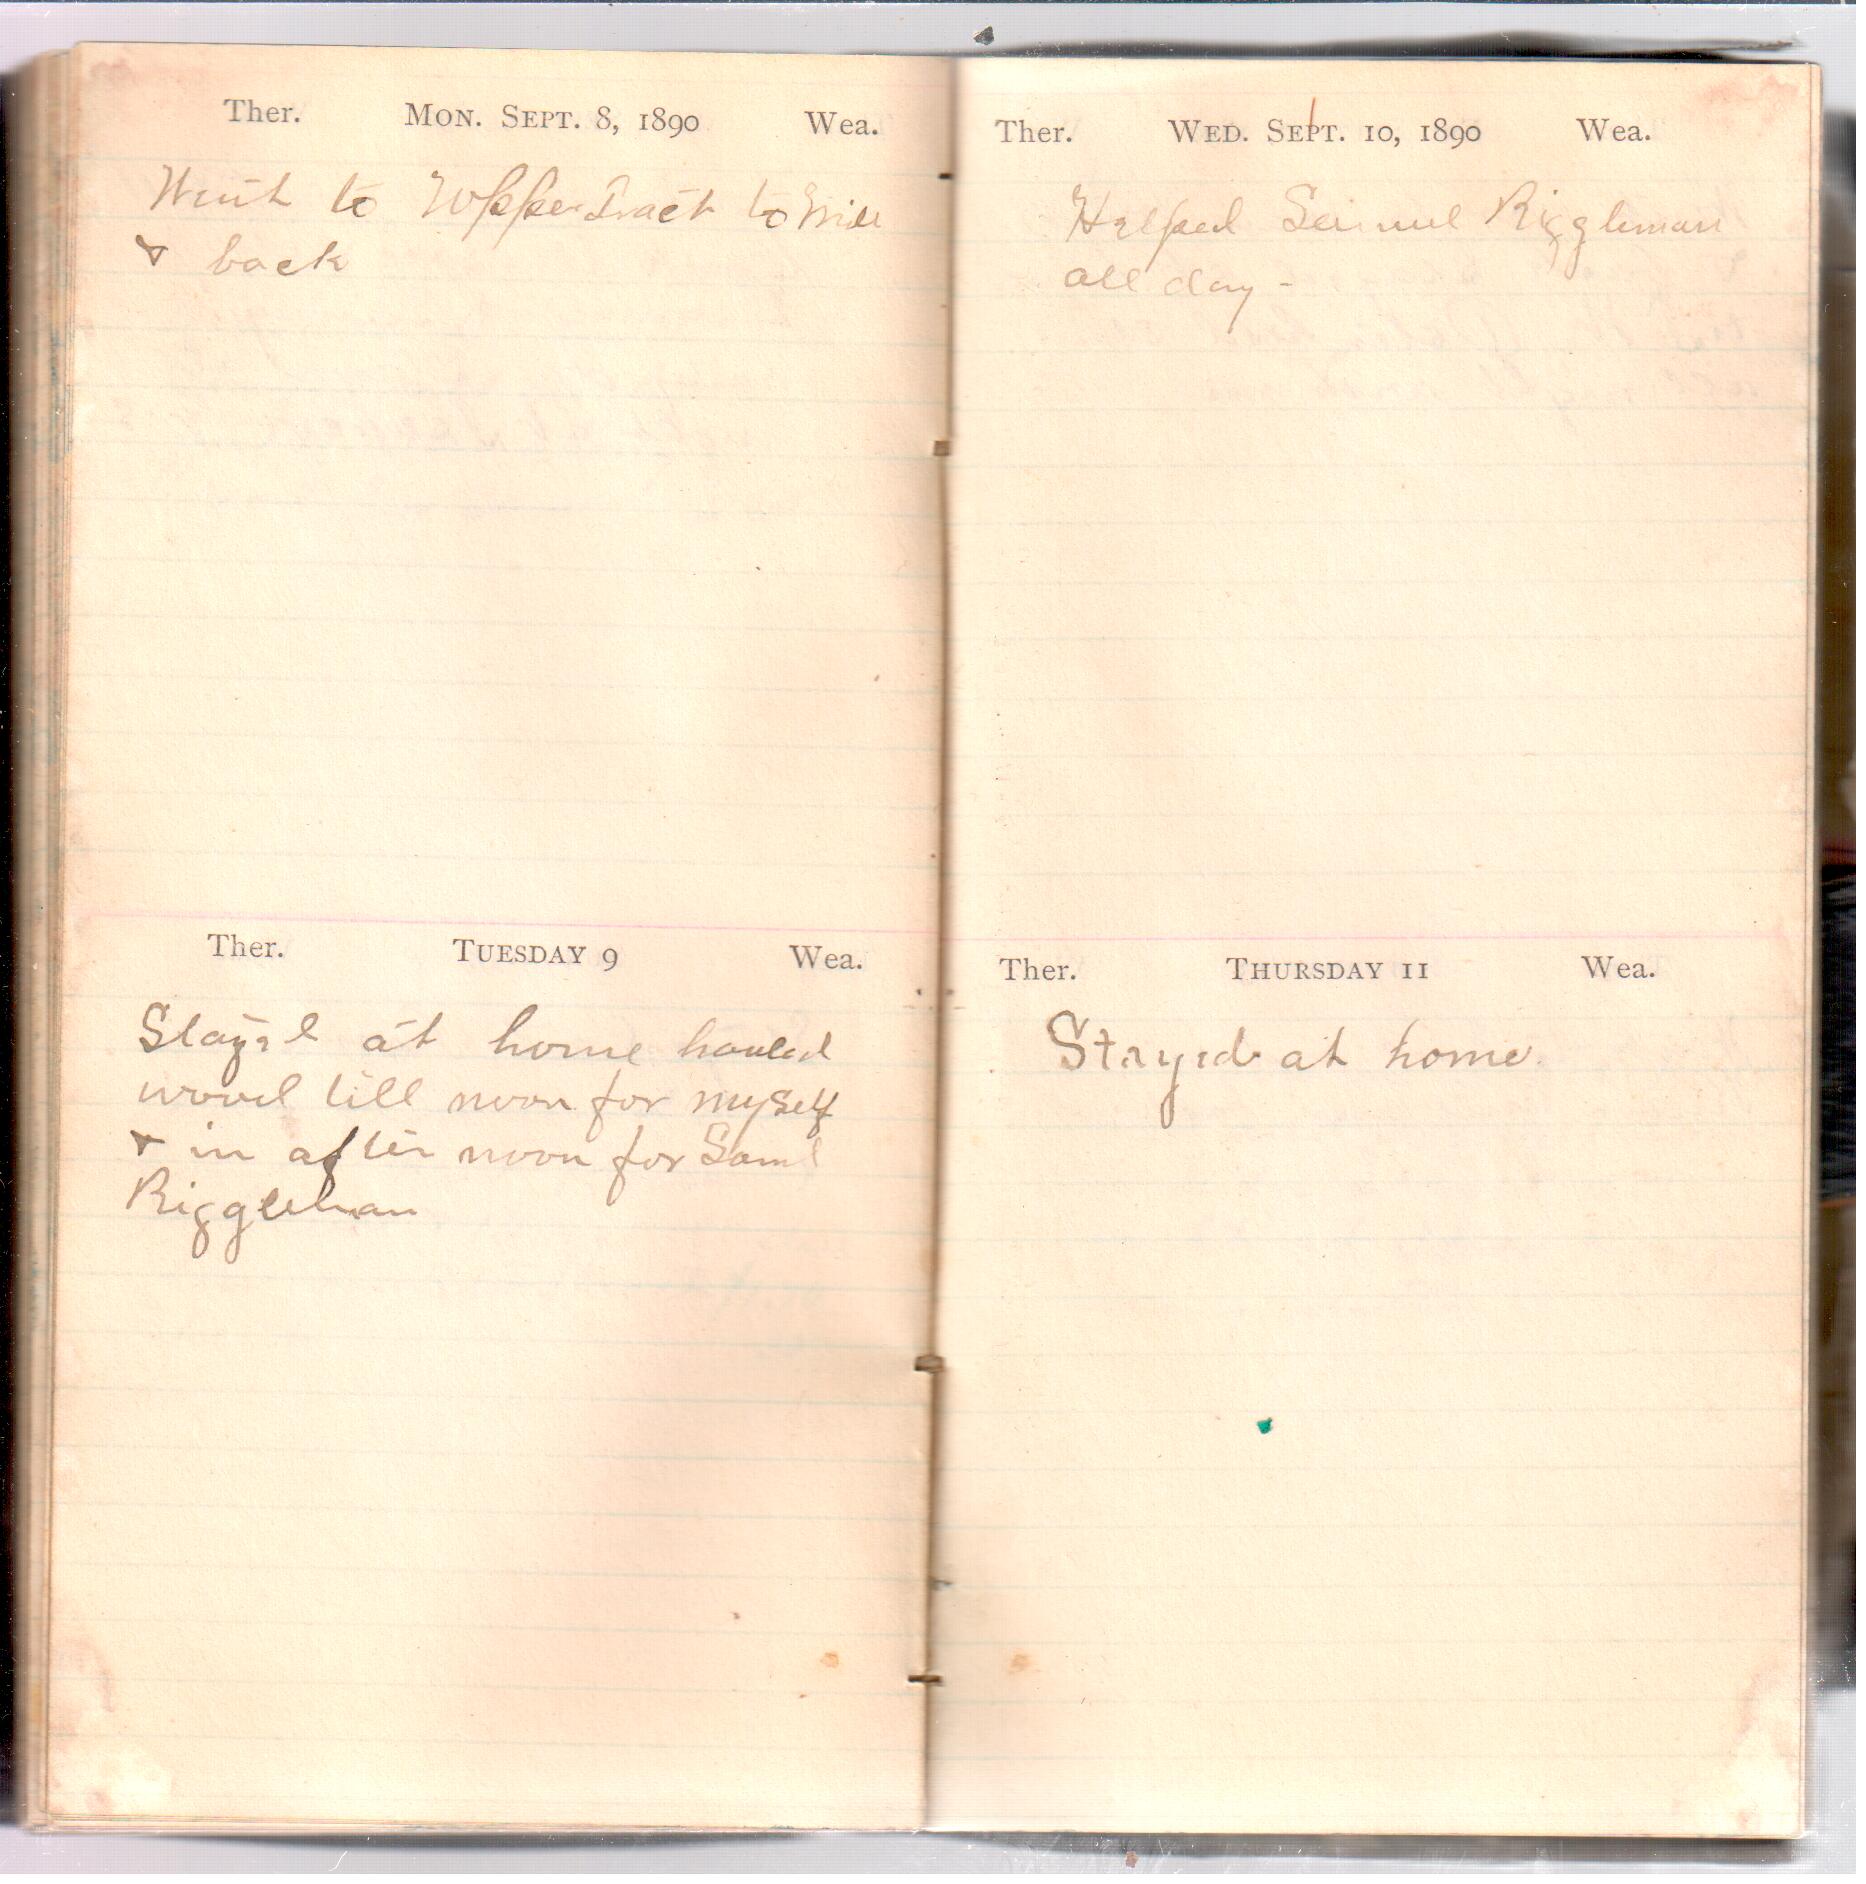 Ther. Mon. Sept. 8, 1890 Wea.
Went to Upper Tract to Mill
& back
Ther. Tuesday 9 Wea.
Stayed at home hauled
wood till noon for myself
& in after noon for Saml
Riggleman
Ther. Wed. Sept. 10, 1890 Wea.
Helped Samuel Riggleman
all day -
Ther. Thursday 11 Wea.
Stayed at home.